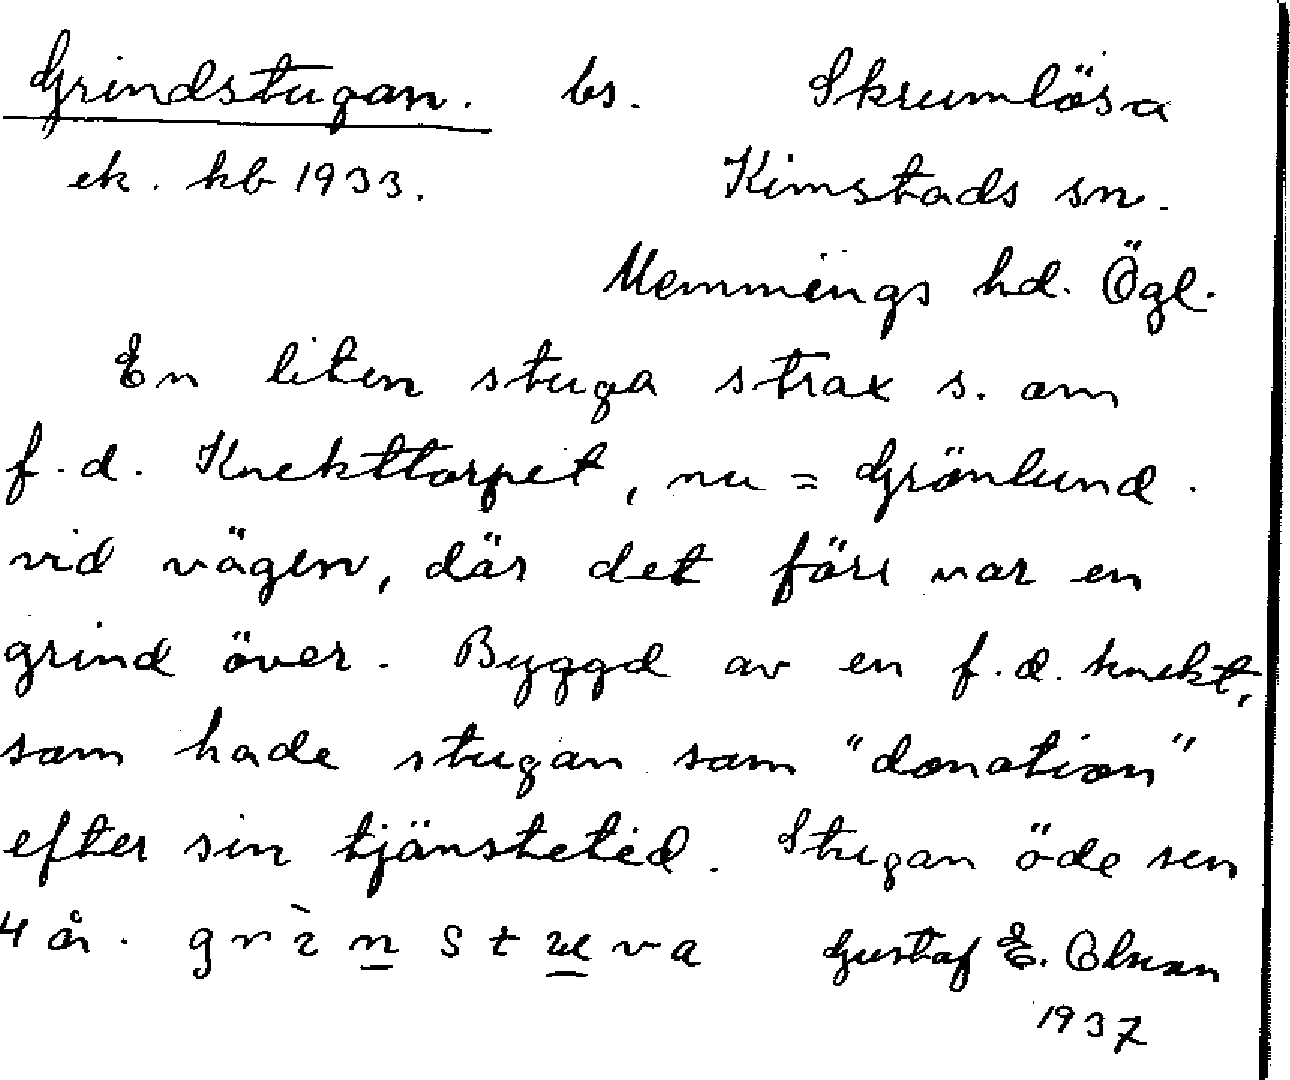 Grindstugan. bs. Skrumlösa
ek. kb 1933. Kimstads sn.
Memmings hd. Ögl.
En liten stuga strax s. om
f.d. Knekttorpet, nu = Grönlund.
vid vägen, där det förr var en
grind över. Byggd av en f.d. knekt,
som hade stugan som "donation"
efter sin tjänstetid. Stugan öde sen
4 år. grìnstuva Gustaf E. Olsson
1937